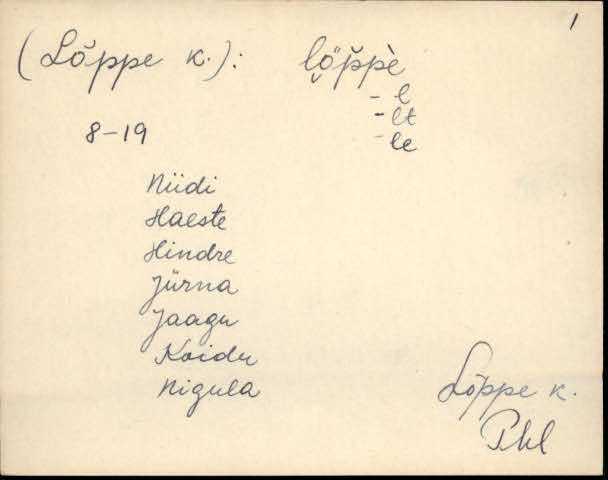 1
(Lõppe k.): lö̬ppè
- l
8-19 - lt
- le
Niidi
Haeste
Hindre
Jürna
Jaagu
Koidu
Nigula
Lõppe k.
Phl